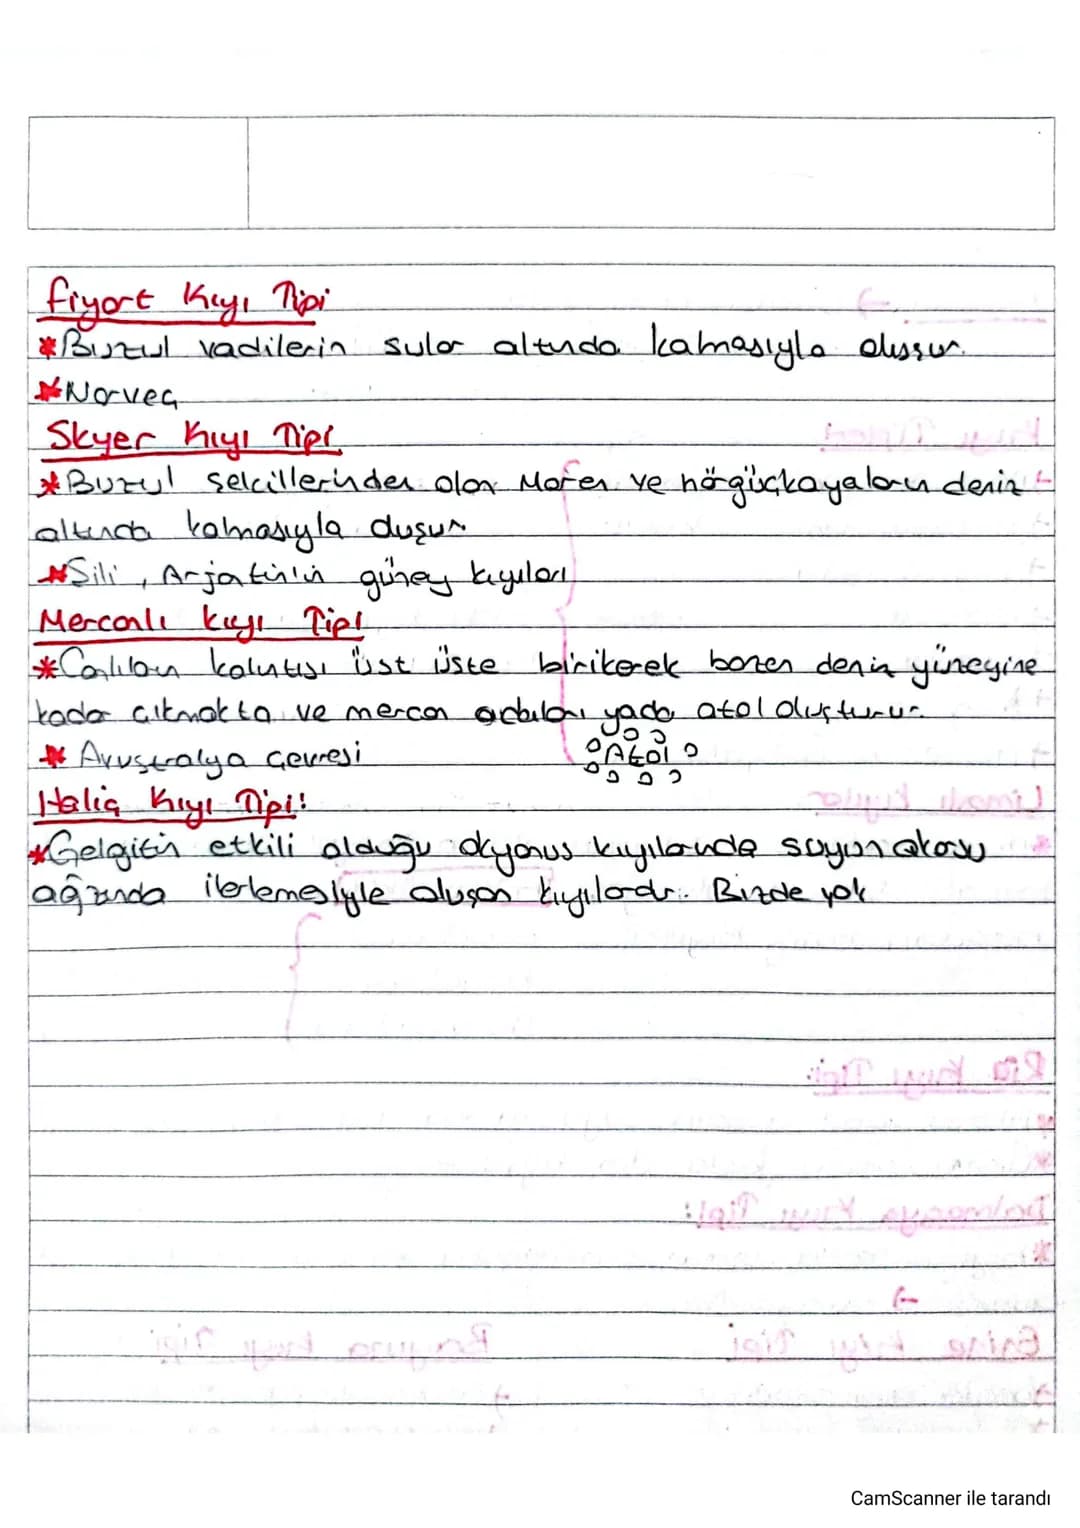 Fiyort Kıyı Tipi
*Buzul vadilerin sular altında kalmasıyla oluşur.
*Norveç
Skyer Kıyı Tipi
*Buzul şekillerinden olan Moren ve hörgüçkayaların deniz
altında kalmasıyla oluşur
*Şili, Arjantinin güney kıyıları
Mercanlı kıyı Tipi
*Canlıların kalıntısı üst üste birikerek bazen deniz yüzeyine
kadar çıkmakta ve mercan adaları yada atol oluşturur.
* Avustralya Çevresi
Atol
Haliç Kıyı Tipi:
*Gelgitin etkili olduğu okyanus kıyılarında suyun akarsu
ağzında ilerlemesiyle oluşan kıyılardır. Bizde yok
CamScanner ile tarandı